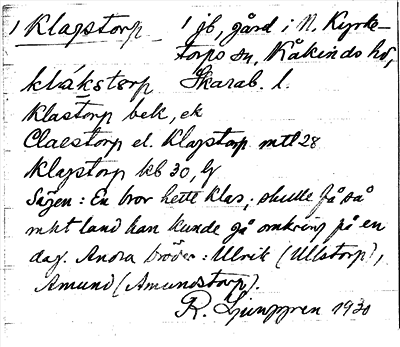 1 Klagstorp 1 jb, gård i N. Kyrke-
torps sn, Kåkinds hd,
klákstərp Skarab. l.
Klastorp bek, ek
Claestorp el. Klagstorp mtl 28
Klagstorp kb 30, lj
Sägen: En bror hette Klas; skulle få så
mkt land han kunde gå omkring på en
dag. Andra bröder: Ulrik (Ulstorp),
Amund (Amundstorp).
R. Ljunggren 1930